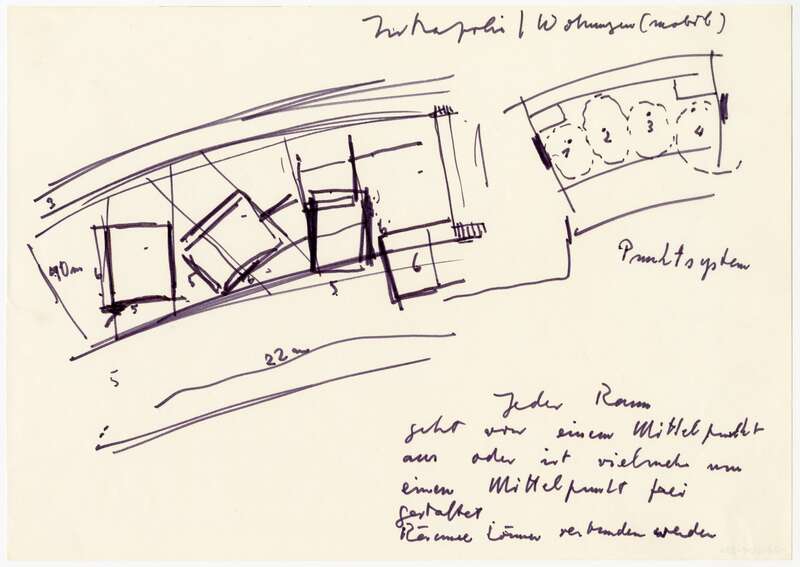 Intrapolis / Wohnungen (mobil)
1
2
3
4
3
10 m
6
5
6
6
5
6
Punktsystem
5
22 m
Jeder Raum
geht von einem Mittelpunkt
aus oder ist vielmehr um
einen Mittelpunkt frei
gestaltet
Räume können verbunden werden